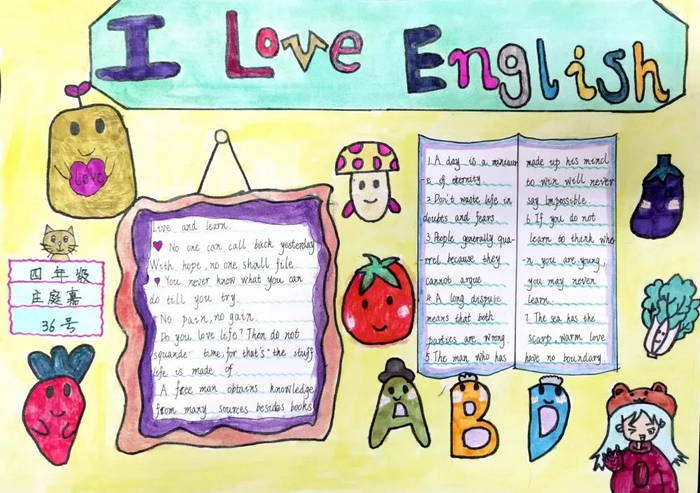 I Love English
love
四年级
庄庭嘉
36号
Live and learn
No one can call back yesterday
With hope, no one shall file
You never know what you can
do till you try
No pain, no gain
Do you love life? Then do not
squande time, for that's the stuff
life is made of
A free man obtains knowledge
from many sources besides books
1. A day is a miniatur
-e of eternity
2. Don't waste life in
doubts and fears
3. People generally qua-
rrel because they
cannot argue
4. A long dispute
means that both
parties are wrong.
5. The man who has
made up his mind
to win will never
say Impossible
6. If you do not
learn to think whe-
n you are young,
you may never
learn.
7. The sea has the
scarp, warm love
have no boundary.
A B D